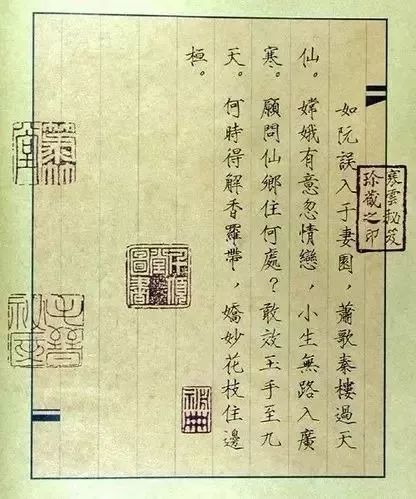 如阮誤入于妻園，蕭歌秦樓過天
仙。嫦娥有意忽情戀，小生無路入廣
寒。願問仙鄉住何處？敢效玉手至九
天。何時得解香羅帶，嬌妙花枝住邊
桓。
寒雲秘笈
珍藏之印